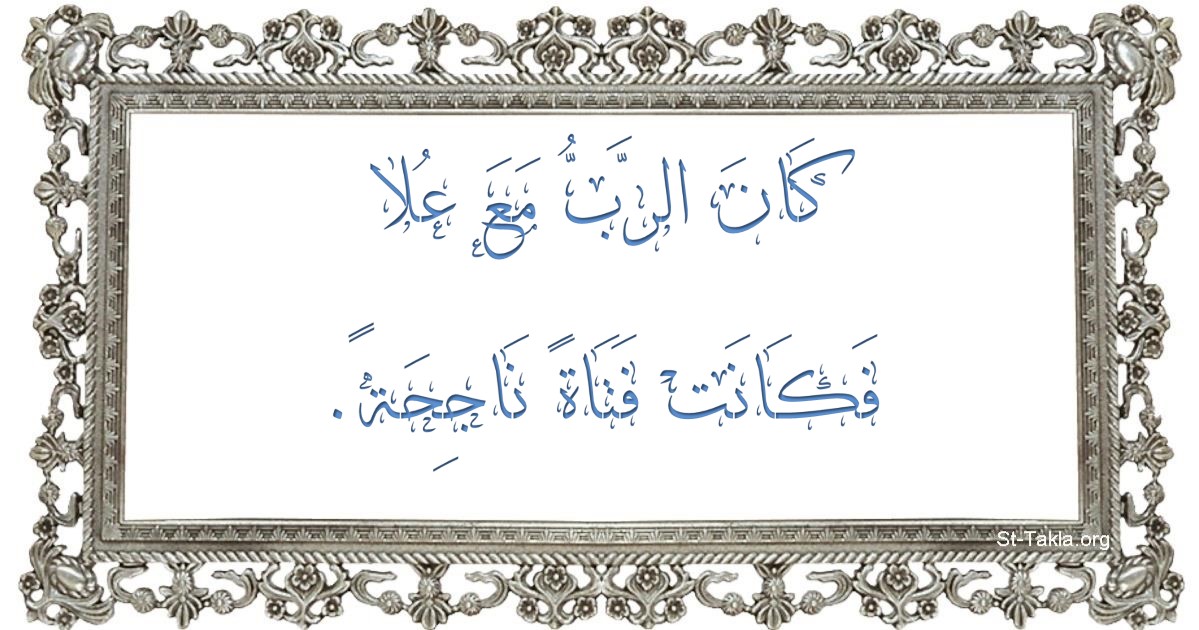 كَانَ الرَّبُّ مَعَ عُلا
فَكَانَت فَتَاةً نَاجِحَةً.
St-Takla.org